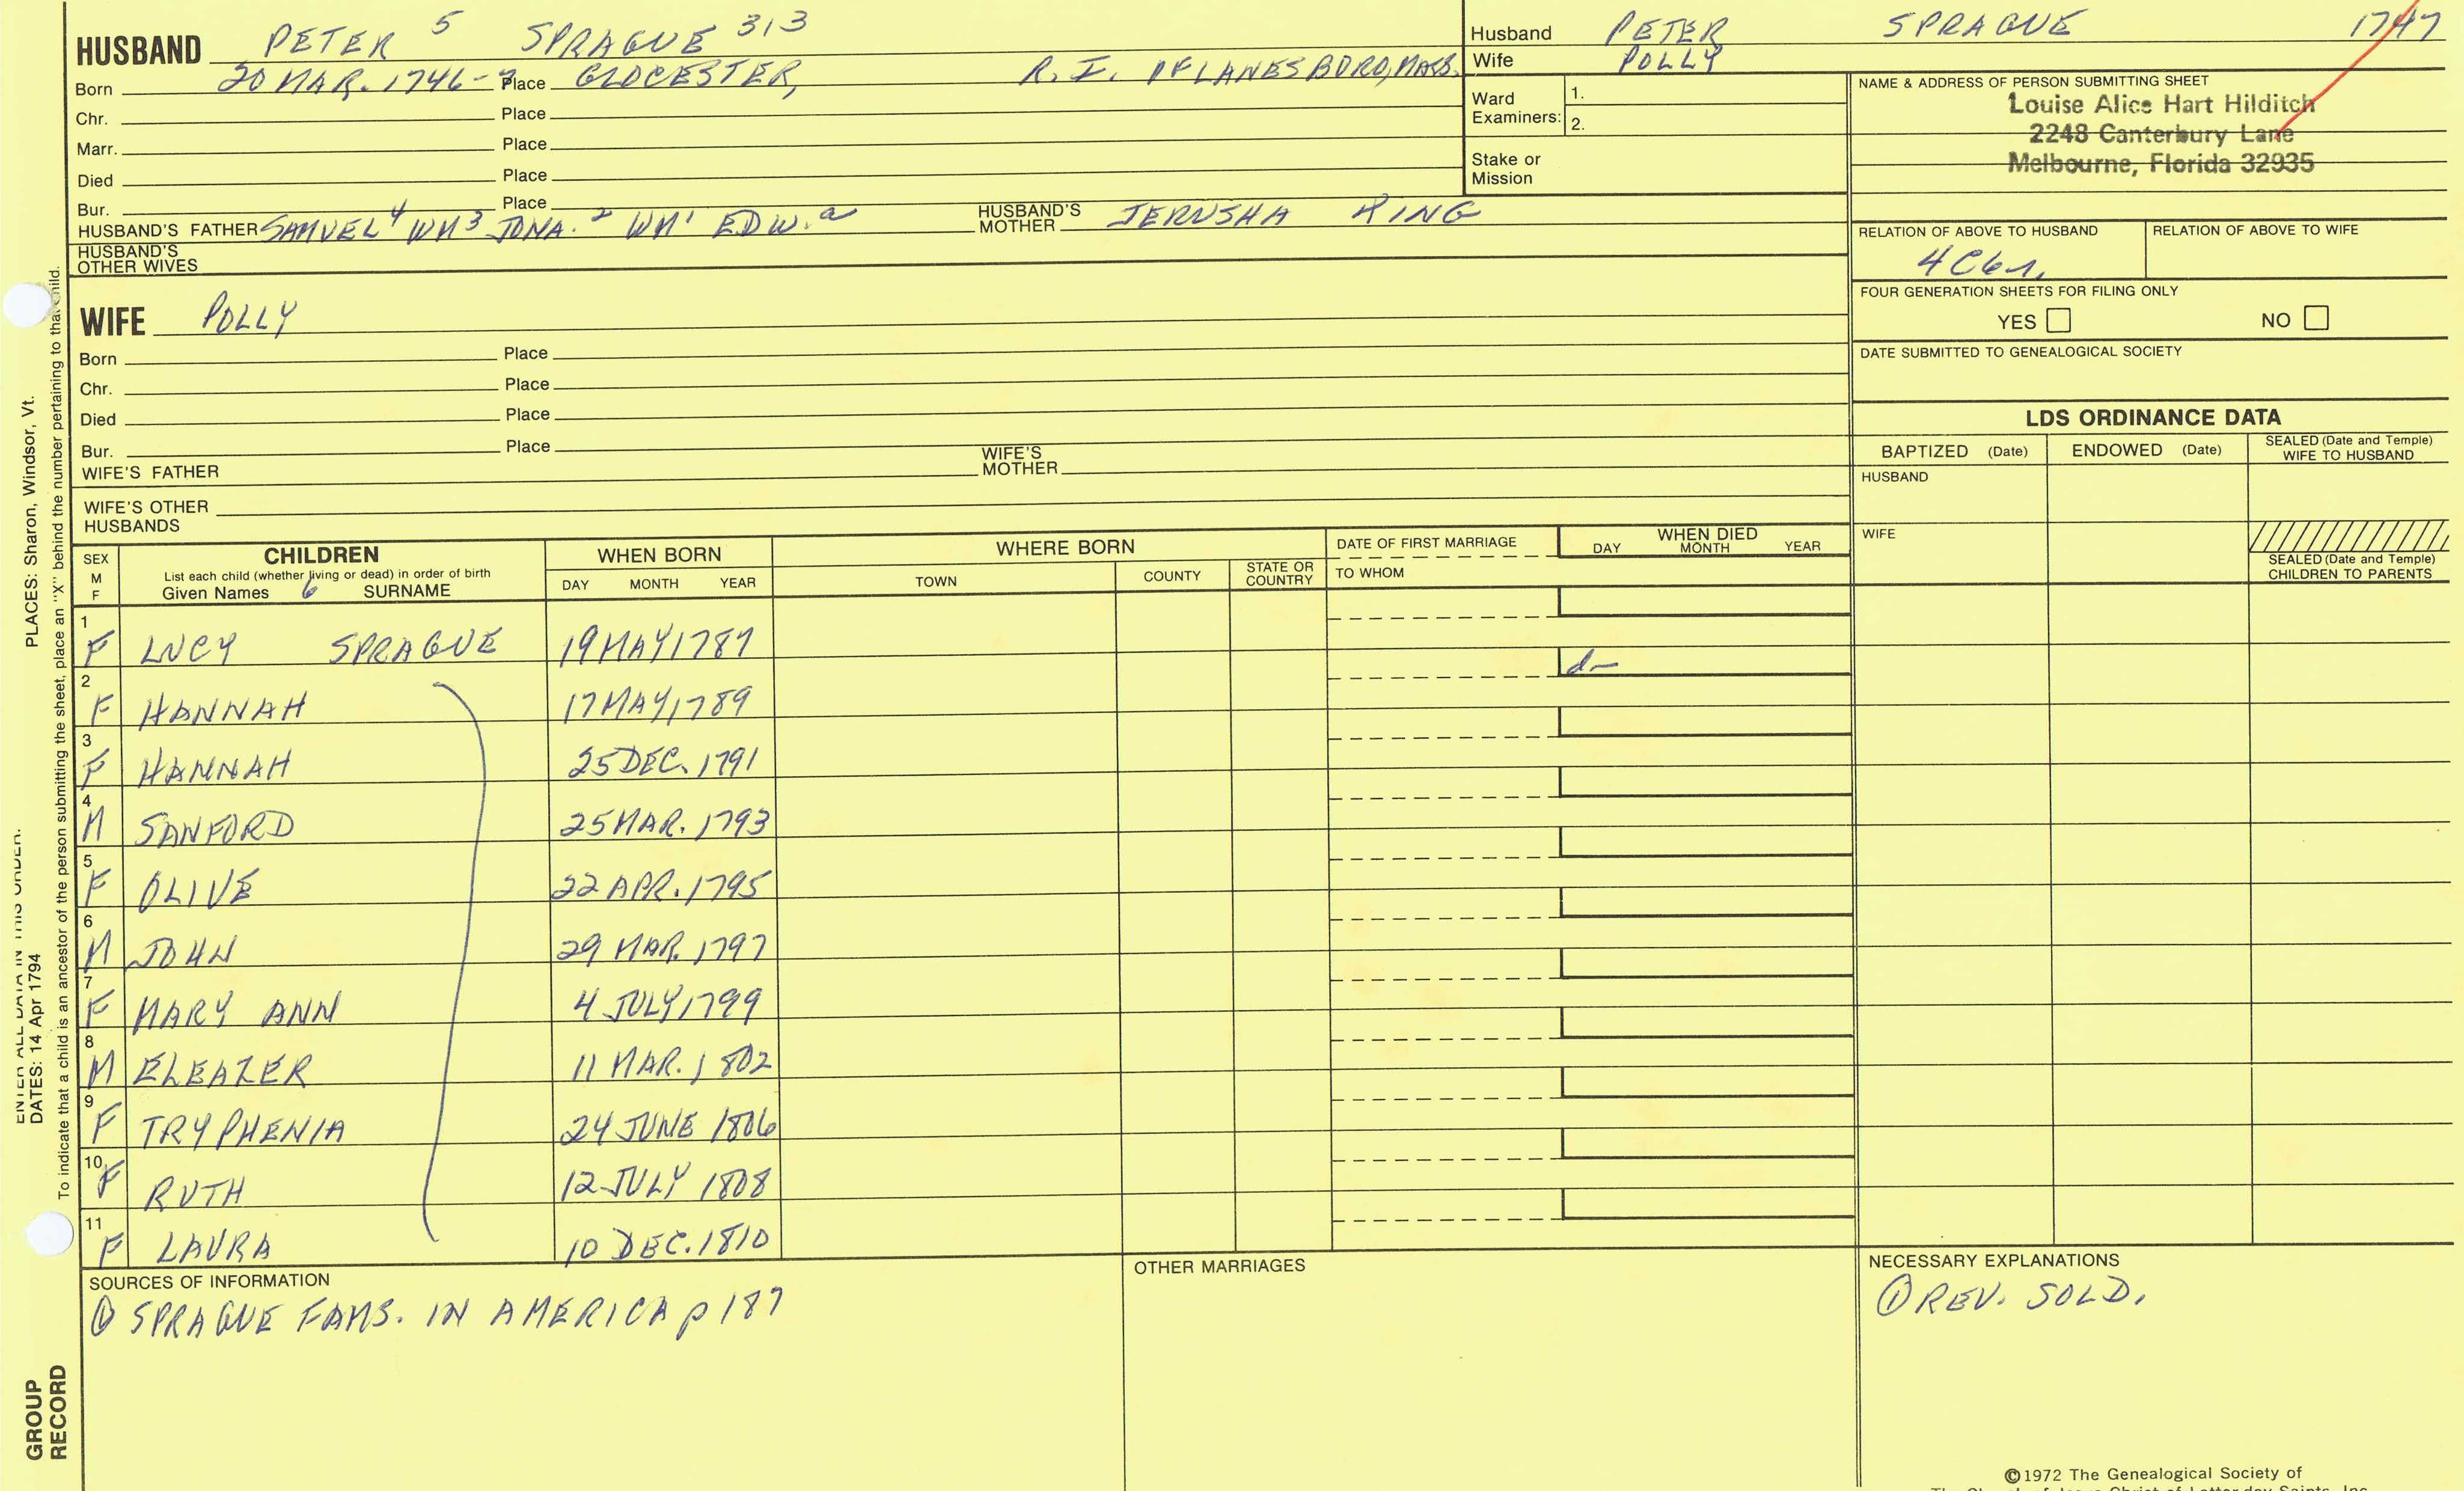 HUSBAND PETER 5 SPRAGUE 313
Born 20 MAR. 1746-7 Place GLOCESTER, R. I. OF LANESBORO, MASS.
Chr. Place
Marr. Place
Died Place
Bur. Place
HUSBAND'S FATHER SAMUEL 4 WM 3 JONA. 2 WM 1 EDW. a HUSBAND'S MOTHER JERUSHA KING
HUSBAND'S OTHER WIVES
Husband PETER SPRAGUE 1747
Wife POLLY
Ward Examiners: 1.
2.
Stake or Mission
NAME & ADDRESS OF PERSON SUBMITTING SHEET
Louise Alice Hart Hilditch
2248 Canterbury Lane
Melbourne, Florida 32935
RELATION OF ABOVE TO HUSBAND RELATION OF ABOVE TO WIFE
FOUR GENERATION SHEETS FOR FILING ONLY
YES NO
DATE SUBMITTED TO GENEALOGICAL SOCIETY
WIFE POLLY
Born Place
Chr. Place
Died Place
Bur. Place
WIFE'S FATHER WIFE'S MOTHER
WIFE'S OTHER HUSBANDS
LDS ORDINANCE DATA
BAPTIZED (Date) ENDOWED (Date) SEALED (Date and Temple) WIFE TO HUSBAND
HUSBAND
WIFE
SEALED (Date and Temple) CHILDREN TO PARENTS
SEX M F
CHILDREN
List each child (whether living or dead) in order of birth
Given Names 6 SURNAME
WHEN BORN
DAY MONTH YEAR
WHERE BORN
TOWN COUNTY STATE OR COUNTRY
DATE OF FIRST MARRIAGE
TO WHOM
WHEN DIED
DAY MONTH YEAR
1 F LUCY SPRAGUE 19 MAY 1787
2 F HANNAH 17 MAY 1789 d-
3 F HANNAH 25 DEC. 1791
4 M SANFORD 25 MAR. 1793
5 F OLIVE 22 APR. 1795
6 M JOHN 29 MAR. 1797
7 F MARY ANN 4 JULY 1799
8 M ELEAZER 11 MAR. 1802
9 F TRYPHENIA 24 JUNE 1806
10 F RUTH 12 JULY 1808
11 F LAURA 10 DEC. 1810
SOURCES OF INFORMATION
① SPRAGUE FAMS. IN AMERICA p 187
OTHER MARRIAGES
NECESSARY EXPLANATIONS
① REV. SOLD.
©1972 The Genealogical Society of
PLACES: Sharon, Windsor, Vt.
DATES: 14 Apr 1794
To indicate that a child is an ancestor of the person submitting the sheet, place an "X" behind the number pertaining to that child.
GROUP
RECORD